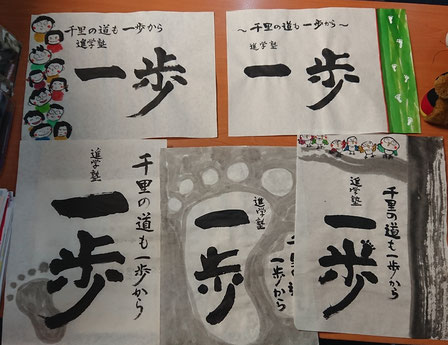 千里の道も一歩から
進学塾
一歩
～千里の道も一歩から～
進学塾
一歩
千里の道も一歩から
進学塾
一歩
千里の道も一歩から
進学塾
一歩
千里の道も一歩から
進学塾
一歩